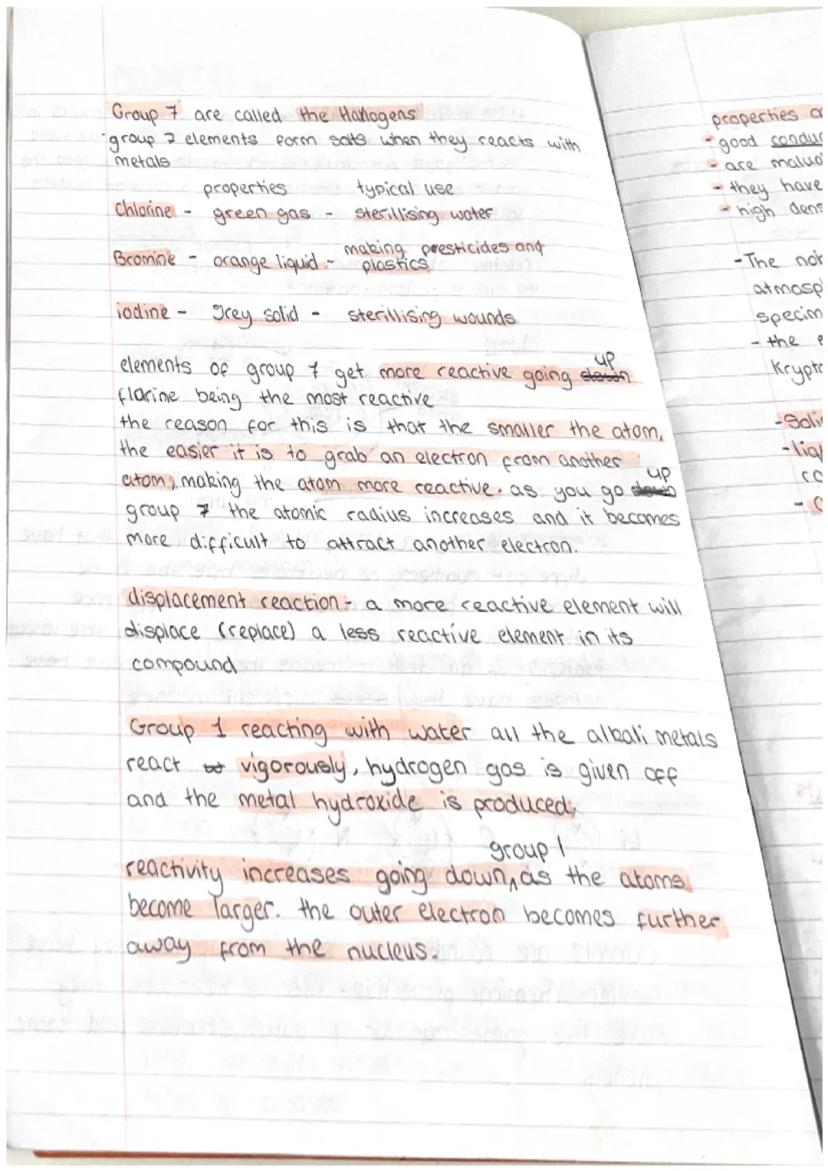 Group 7 are called the Halogens
·group 7 elements form salts when they reacts with
metals
properties typical use
Chlorine - green gas - sterillising water
Bromine - orange liquid - making presticides and
plastics
iodine - Grey solid - sterillising wounds
elements of group 7 get more reactive going up
florine being the most reactive
the reason for this is that the smaller the atom,
the easier it is to grab an electron from another
atom, making the atom more reactive. as you go up
group 7 the atomic radius increases and it becomes
more difficult to attract another electron.
displacement reaction - a more reactive element will
displace (replace) a less reactive element in its
compound
Group 1 reacting with water all the albali metals
react vigorously, hydrogen gas is given off
and the metal hydroxide is produced.
group 1
reactivity increases going down, as the atoms
become larger. the outer electron becomes further
away from the nucleus.
properties
- good conduc
- are
- they have
- high dens
- The
atmosp
specim
- the
Krypto
- Soli
- liq